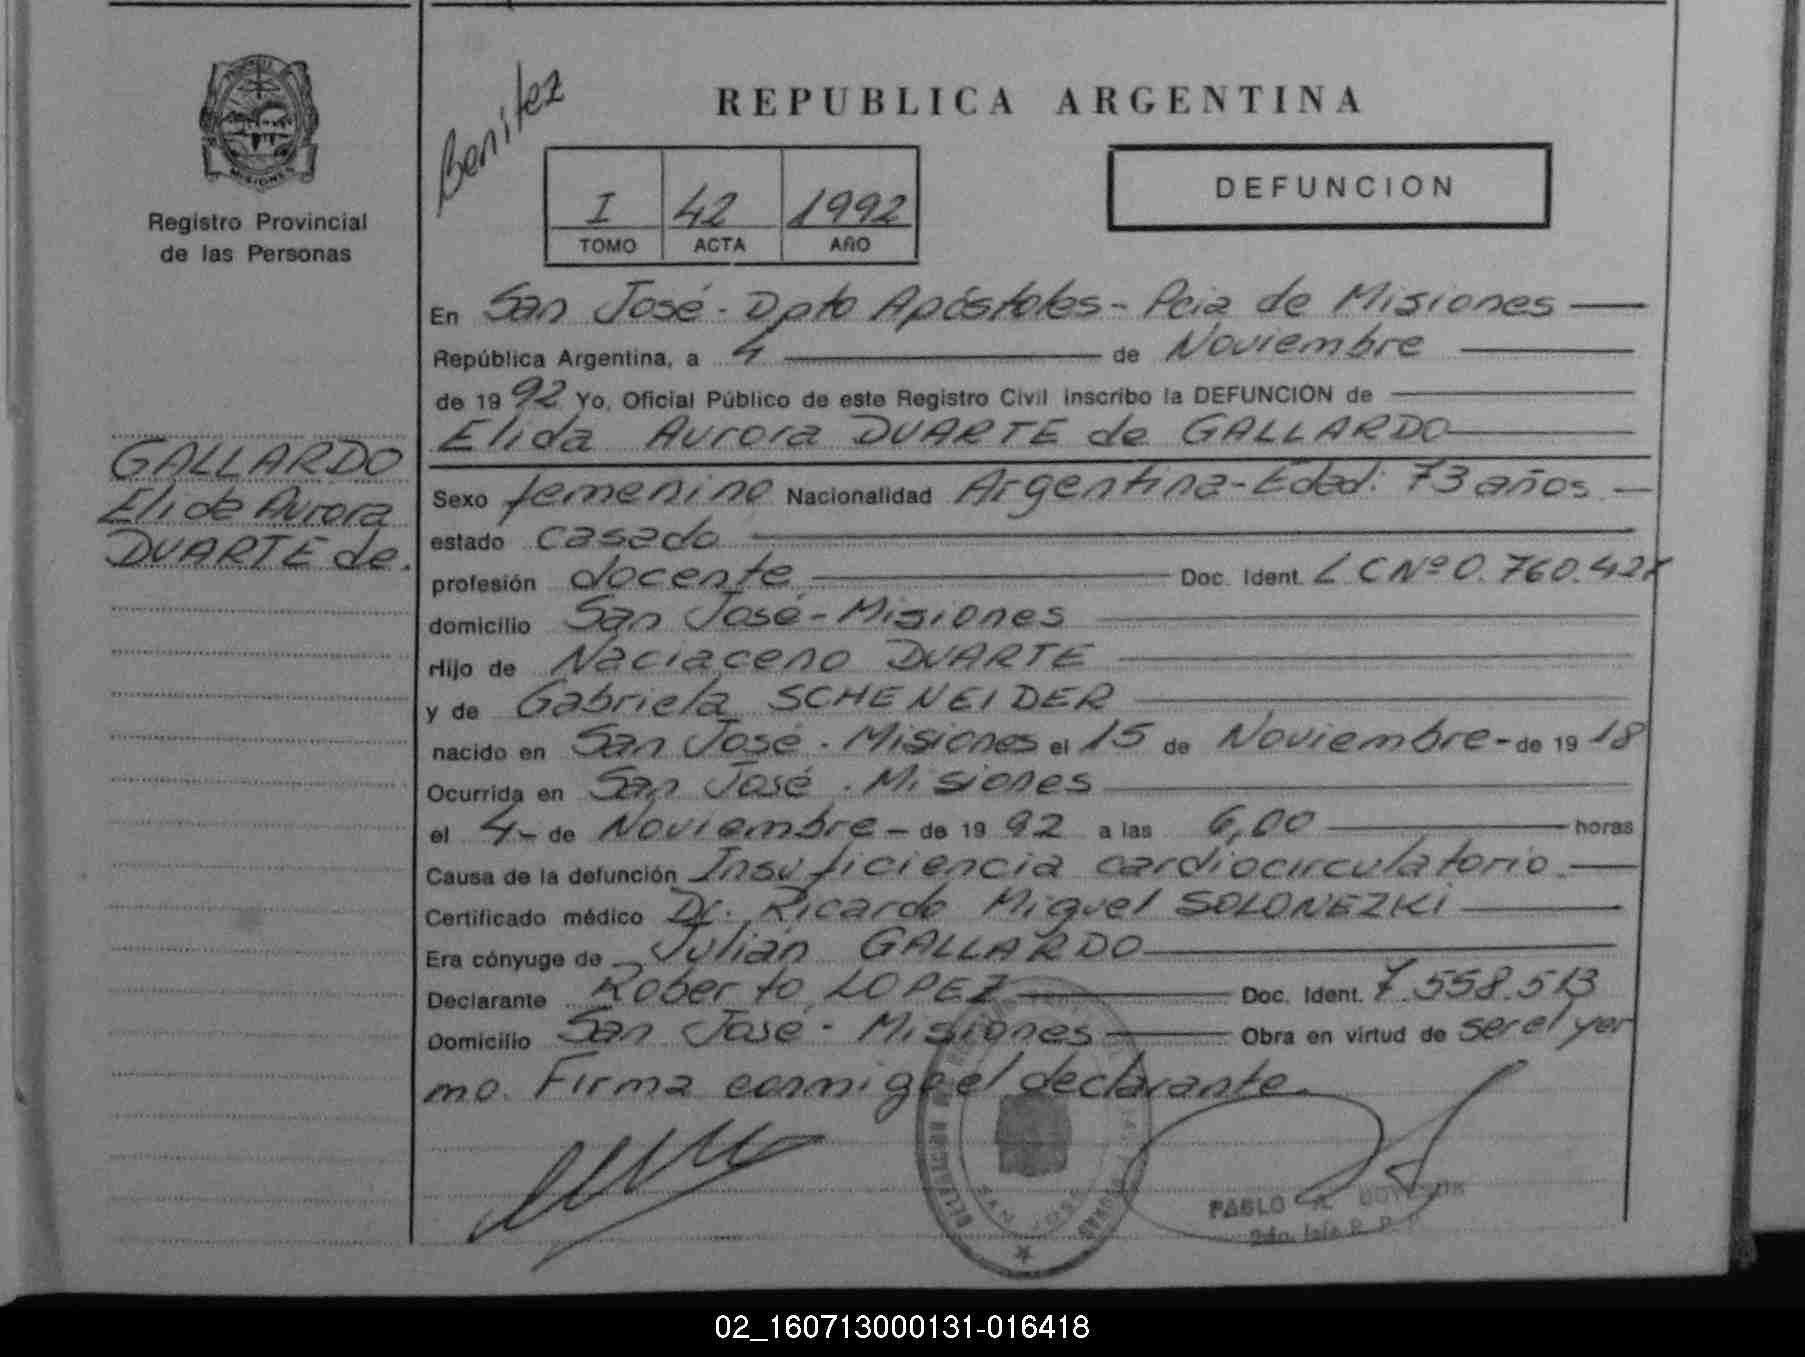 Benitez
REPUBLICA ARGENTINA
MISIONES
Registro Provincial
de las Personas
I 42 1992
TOMO ACTA AÑO
DEFUNCION
En San José - Dpto Apóstoles - Pcia de Misiones
República Argentina, a 4 de Noviembre
de 1992 Yo, Oficial Público de este Registro Civil inscribo la DEFUNCION de
Elida Aurora DUARTE de GALLARDO
GALLARDO
Elida Aurora
DUARTE de.
Sexo femenino Nacionalidad Argentina - Edad: 73 años
estado casada
profesión docente Doc. Ident. L.C Nº 0.760.42
domicilio San José - Misiones
Hijo de Naciaceno DUARTE
y de Gabriela SCHENEIDER
nacido en San José - Misiones el 15 de Noviembre - de 1918
Ocurrida en San José - Misiones
el 4 - de Noviembre - de 1992 a las 6,00 horas
Causa de la defunción Insuficiencia cardiocirculatorio
Certificado médico Dr. Ricardo Miguel SOLONEZKI
Era cónyuge de Julian GALLARDO
Declarante Roberto LOPEZ Doc. Ident. 7.558.513
Domicilio San José - Misiones Obra en virtud de ser el yer
mo. Firma conmigo el declarante.
SAN JOSE
PABLO
02_160713000131-016418